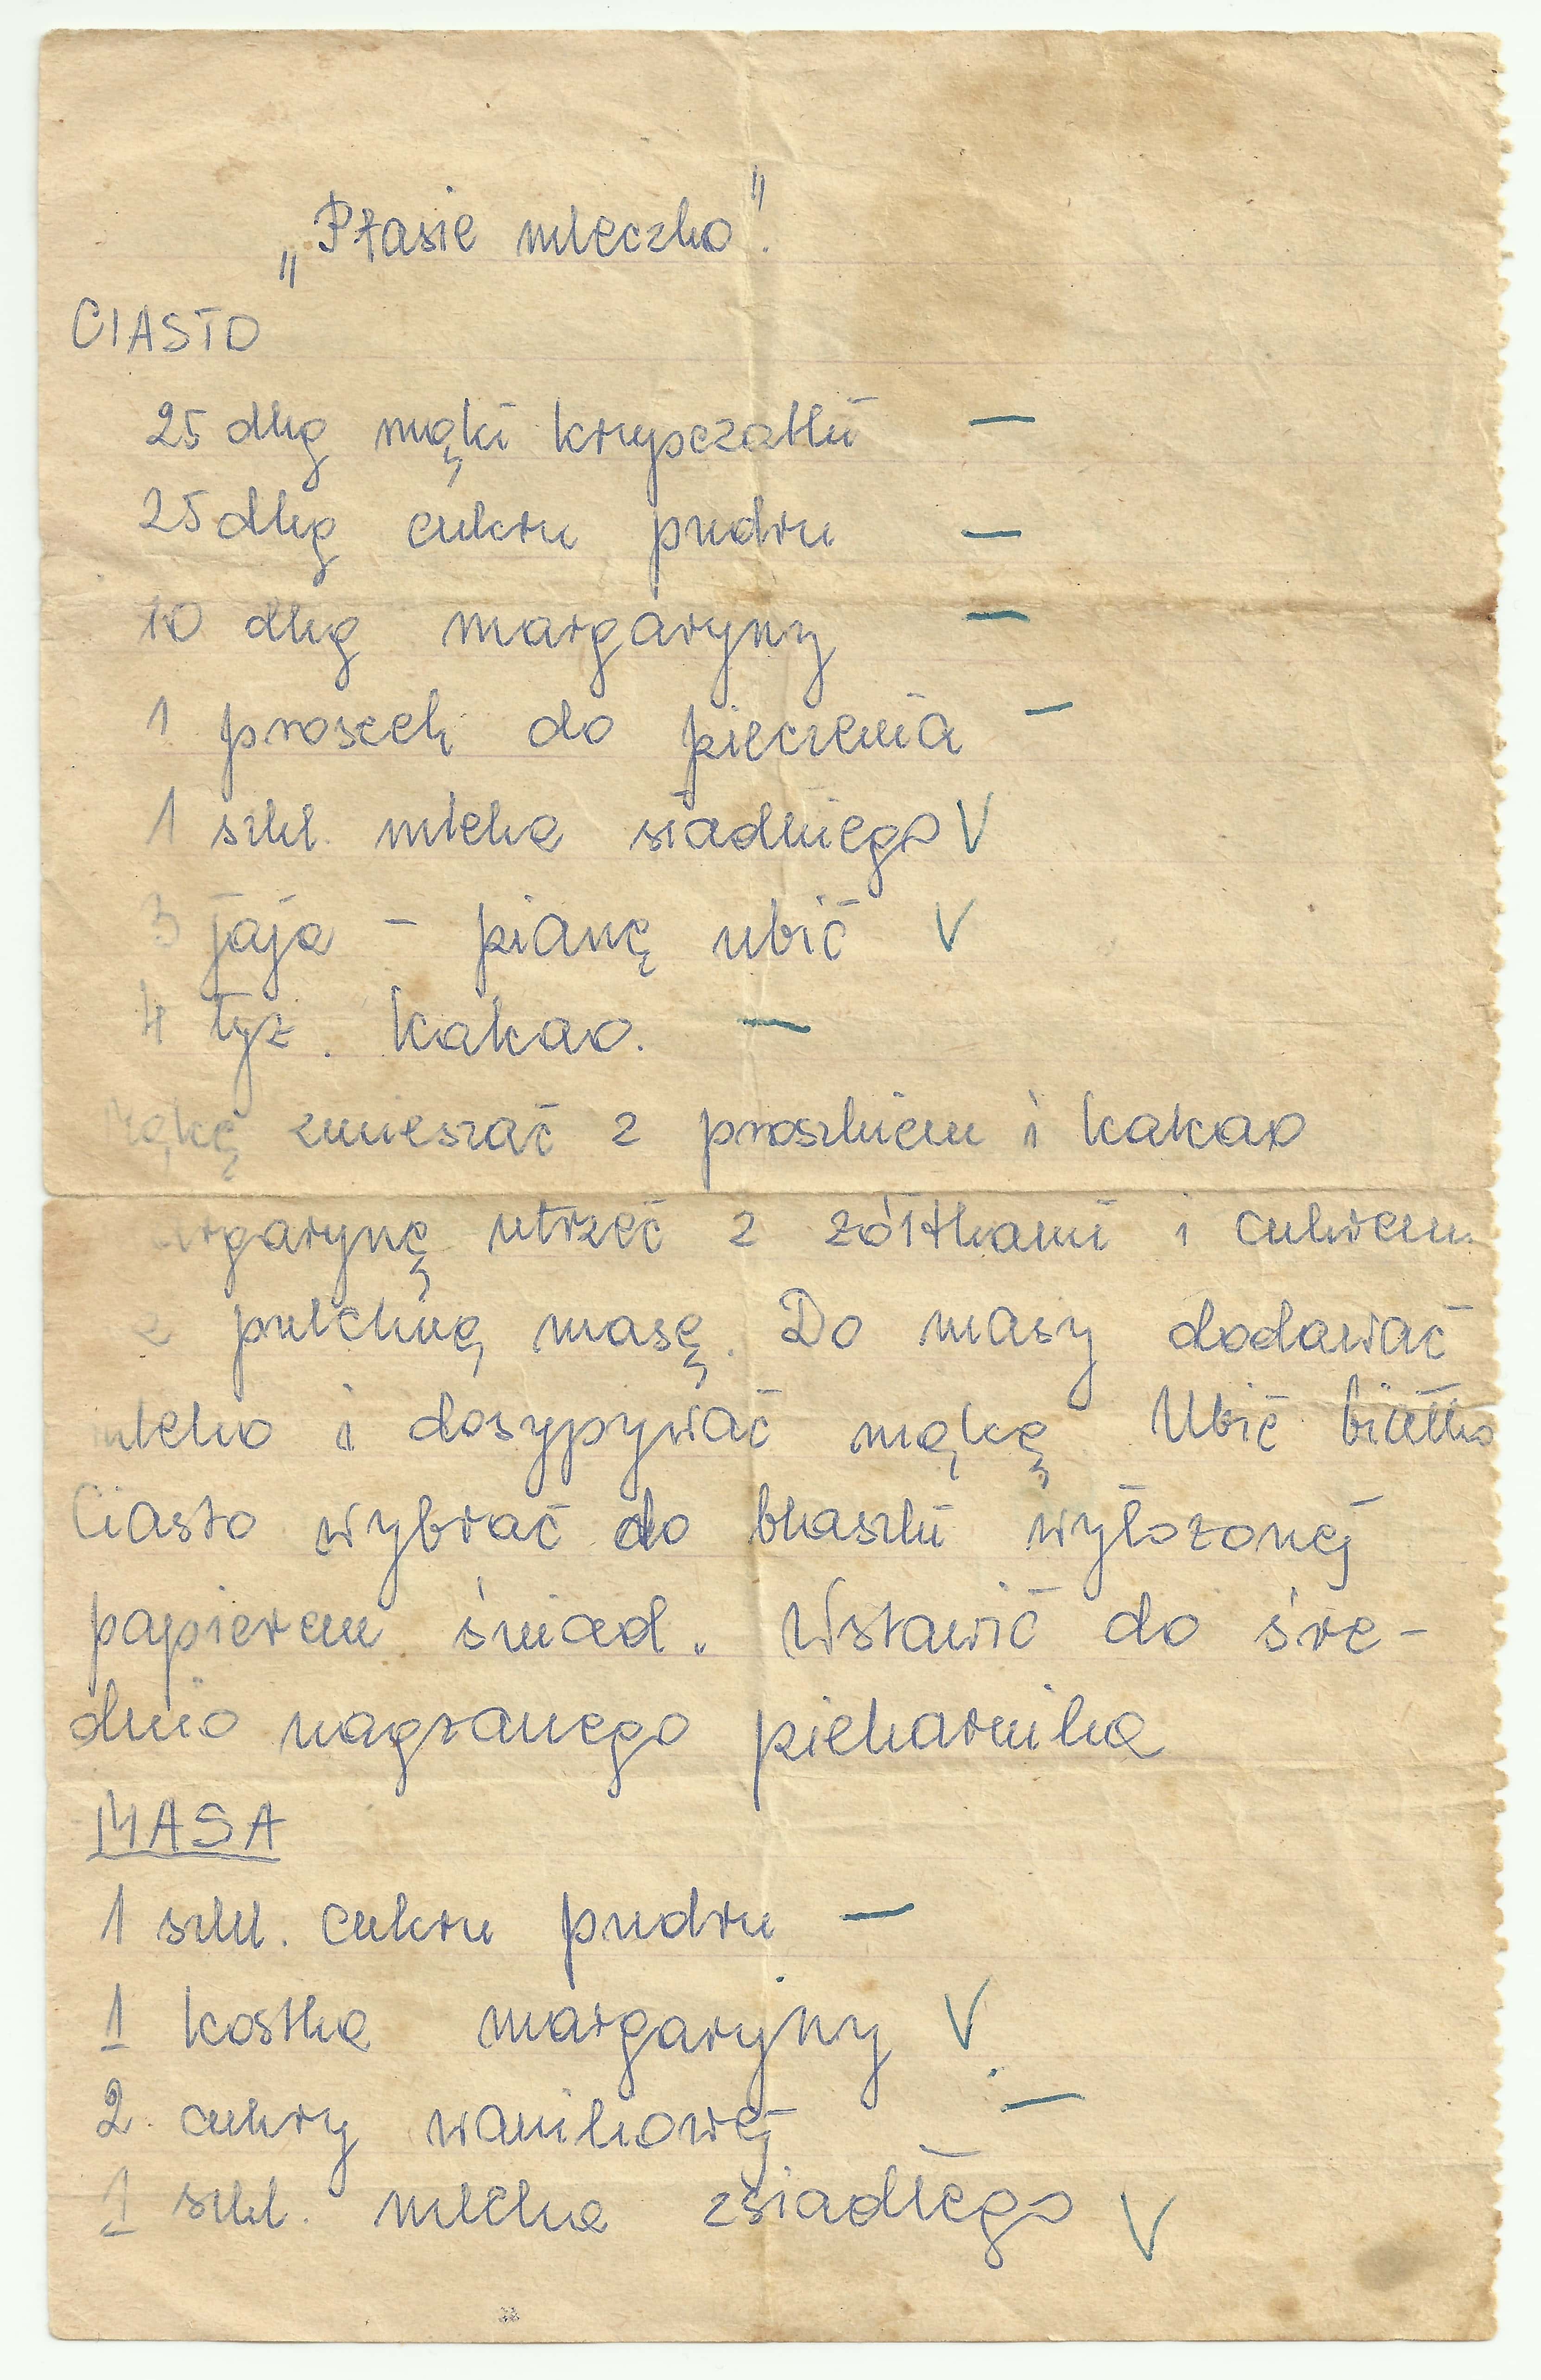 „Ptasie mleczko”.
CIASTO
25 dkg mąki krupczatki —
25 dkg cukru pudru —
10 dkg margaryny —
1 proszek do pieczenia —
1 szkl. mleka siadłego V
3 jaja – pianę ubić V
4 łyż. kakao. —
Mąkę zmieszać z proszkiem i kakao
margarynę utrzeć z żółtkami i cukrem
pulchną masę. Do masy dodawać
mleko i dosypywać mąkę Ubić białko
Ciasto wybrać do blaszki wyłożonej
papierem śniad. Wstawić do śre-
dnio nagrzanego piekarnika
MASA
1 szkl. cukru pudru —
1 kostka margaryny V
2 cukry waniliowej —
1 szkl. mleka zsiadłego V